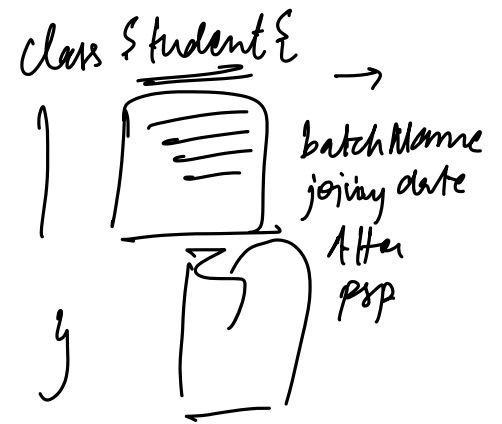 class Student {
batchName
joining date
Atten
psp
}